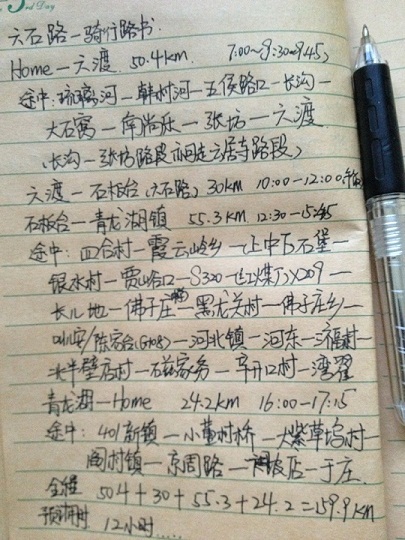 3rd Day
六石路—骑行路书
Home—六渡 50.4km 7:00—9:30—9:45
途中:琉璃河—韩村河—五侯路口—长沟—
大石窝—南尚乐—张坊—六渡
(长沟—张坊路段亦可走六居寺路段)
六渡—石板台(六石路) 30km 10:00—12:00午餐
石板台—青龙湖镇 55.3km 12:30—15:45
途中:四合村—霞云岭乡—上中下石堡—
银水村—贾峪口—S320 X209—
长儿地—佛子庄—黑龙关村—佛子庄乡—
陈家台(G108)—河北镇—河东—
半壁店村—磁家务—辛开口村—
青龙湖—Home 24.2km 16:00—17:15
途中:401新镇—小董村桥—大紫草坞村—
阎村镇—京周路—饶乐府—于庄
全程 50.4+30+55.3+24.2=159.9KM
预计用时 12小时……